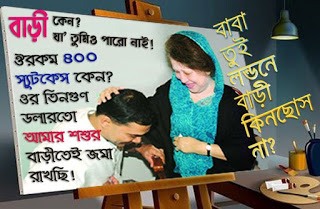 বাড়ী কেন?
যা' তুমিও পারো নাই!
ওরকম ৪০০
স্যুটকেস কেন?
ওর তিনগুণ
ডলারতো
আমার শশুর
বাড়ীতেই জমা
রাখছি!
বাবা
তুই
লন্ডনে
বাড়ী
কিনছোস
না?